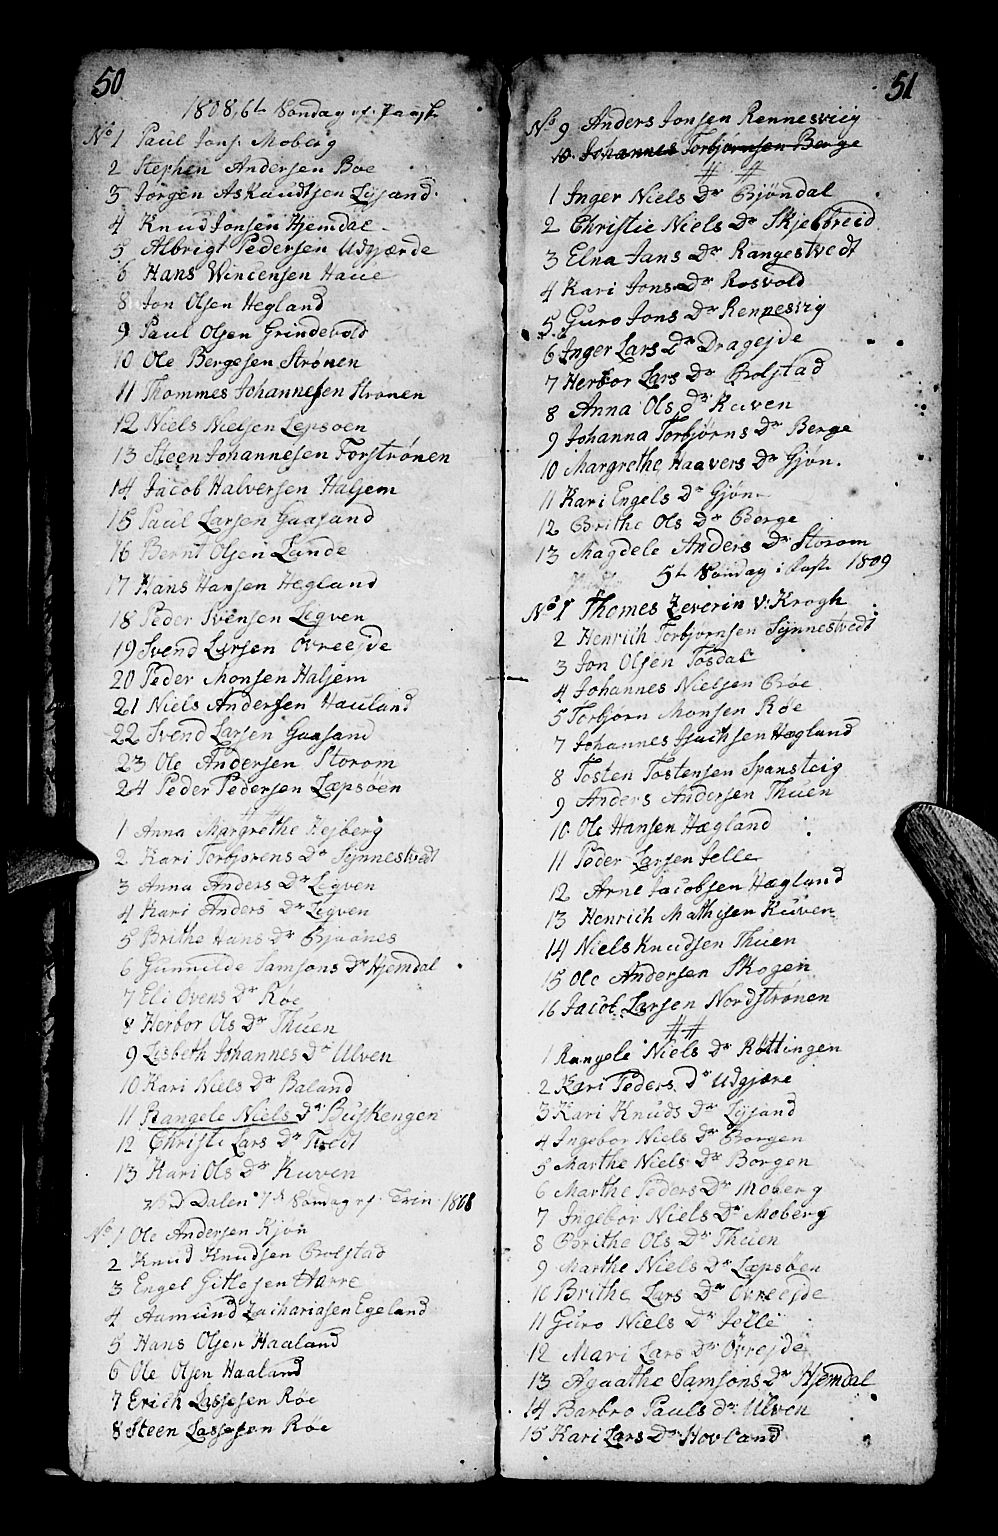 50
1808, 6t Søndag ef: Paaske
No 1 Paul Jons. Moberg
2 Stephen Andersen Boe
3 Jörgen Askundtsen Lysand
4 Knud Jonsen Hjemdal
5 Albrigt Pedersen Udgjærde
6 Hans Wincensen Haue
8 Jon Olsen Hegland
9 Paul Olsen Grindevold
10 Ole Bergesen Strønen
11 Thommes Johannesen Strønen
12 Niels Nielsen Lepsøen
13 Steen Johannesen Forstrønen
14 Jacob Halversen Haljem
15 Paul Larsen Gaasand
16 Bernt Olsen Lunde
17 Hans Hansen Hegland
18 Peder Svensen Legven
19 Svend Larsen Øvreejde
20 Peder Monsen Haljem
21 Niels Andersen Hauland
22 Svend Larsen Gaasand
23 Ole Andersen Storom
24 Peder Pedersen Læpsøen
1 Anna Margrethe Hejberg
2 Kari Torbjørens Dr Synnestvedt
3 Anna Anders Dr Legven
4 Kari Anders Dr Legven
5 Brithe Hans Dr Bjaanes
6 Gunnilde Samsons Dr Hjemdal
7 Eli Ovens Dr Røe
8 Herbor Ols Dr Thuen
9 Lisbeth Johannes Dr Ulven
10 Kari Niels Dr Baland
11 Rangele Niels Dr Buskengen
12 Christi Lars Dr Tvedt
13 Kari Ols Dr Kuven
Ved Dalen 7de Søndag ef: Trin. 1808
No 1 Ole Andersen Kjøn
2 Knud Knudsen Bolstad
3 Engel Gitlesen Harre
4 Aamund Zachariasen Egeland
5 Hans Olsen Haaland
6 Ole Olsen Haaland
7 Erich Lassesen Røe
8 Steen Lassesen Røe
51
No 9 Anders Jonsen Rennesvieg
10 Johannes Torbjørnsen Berge
# #
1 Inger Niels Dr Bjöndal
2 Christie Niels Dr Skjelbreid
3 Elna Jans Dr Rangestvedt
4 Kari Jons Dr Rosvold
5 Guro Jons Dr Rennesvig
6 Inger Lars Dr Dragejde
7 Herbor Lars Dr Bolstad
8 Anna Ols dr Kuven
9 Johanna Torbjørns Dr Berge
10 Margrethe Haavers Dr Gjøn.
11 Kari Engels Dr Gjøn
12 Brithe Ols Dr Berge
13 Magdele Anders Dr Storom
5t Søndag i Faste 1809
No 1 Thomes Zeverin v: Krogh
2 Henrich Torbjornsen Synnestvedt
3 Jon Olsen Tøsdal
4 Johannes Nielsen Røe
5 Torbjørn Monsen Røe
7 Johannes Isachsen Hægland
8 Tosten Tostensen Spansteig
9 Anders Andersen Thuen
10 Ole Hansen Hægland
11 Peder Larsen Jelle
12 Arne Jacobsen Hægland
13 Henrich Mathisen Kuven
14 Niels Knudsen Thuen
15 Ole Andersen Skogen
16 Jacob Larsen Nordstrønen
# #
1 Rangele Niels Dr Røttingen
2 Kari Peders Dr Udgjære
3 Kari Knuds Dr Lysand
4 Ingebor Niels Dr Borgen
5 Marthe Niels Dr Borgen
6 Marthe Peders Dr Moberg
7 Ingebor Niels Dr Moberg
8 Brithe Ols Dr Thuen
9 Marthe Niels Dr Læpsøen
10 Brithe Lars Dr Øvreejde
11 Guro Niels Dr Jelle
12 Mari Lars Dr Øvrejde
13 Agaathe Samsons Dr Hjemdal
14 Barbro Pauls Dr Ulven
15 Kari Lars Dr Hovland